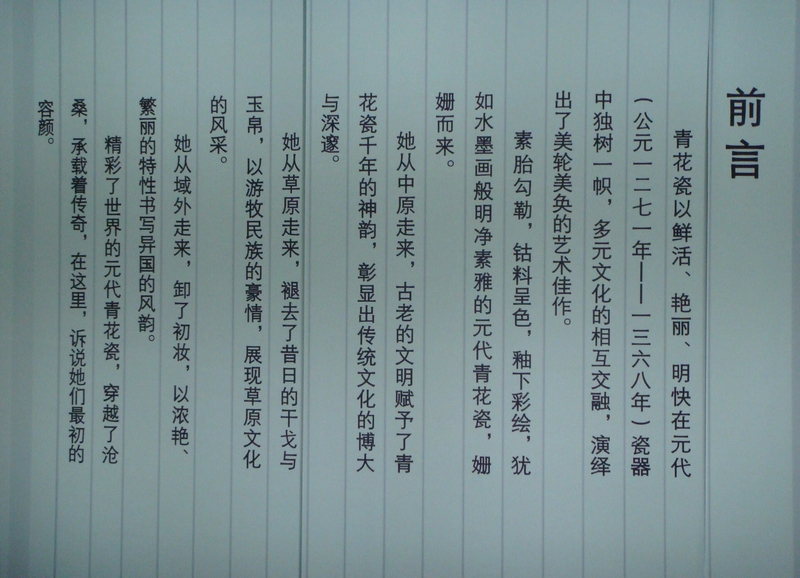 前言
青花瓷以鲜活、艳丽、明快在元代
(公元一二七一年——一三六八年)瓷器
中独树一帜，多元文化的相互交融，演绎
出了美轮美奂的艺术佳作。
素胎勾勒，钴料呈色，釉下彩绘，犹
如水墨画般明净素雅的元代青花瓷，姗
姗而来。
她从中原走来，古老的文明赋予了青
花瓷千年的神韵，彰显出传统文化的博大
与深邃。
她从草原走来，褪去了昔日的干戈与
玉帛，以游牧民族的豪情，展现草原文化
的风采。
她从域外走来，卸了初妆，以浓艳、
繁丽的特性书写异国的风韵。
精彩了世界的元代青花瓷，穿越了沧
桑，承载着传奇，在这里，诉说她们最初的
容颜。